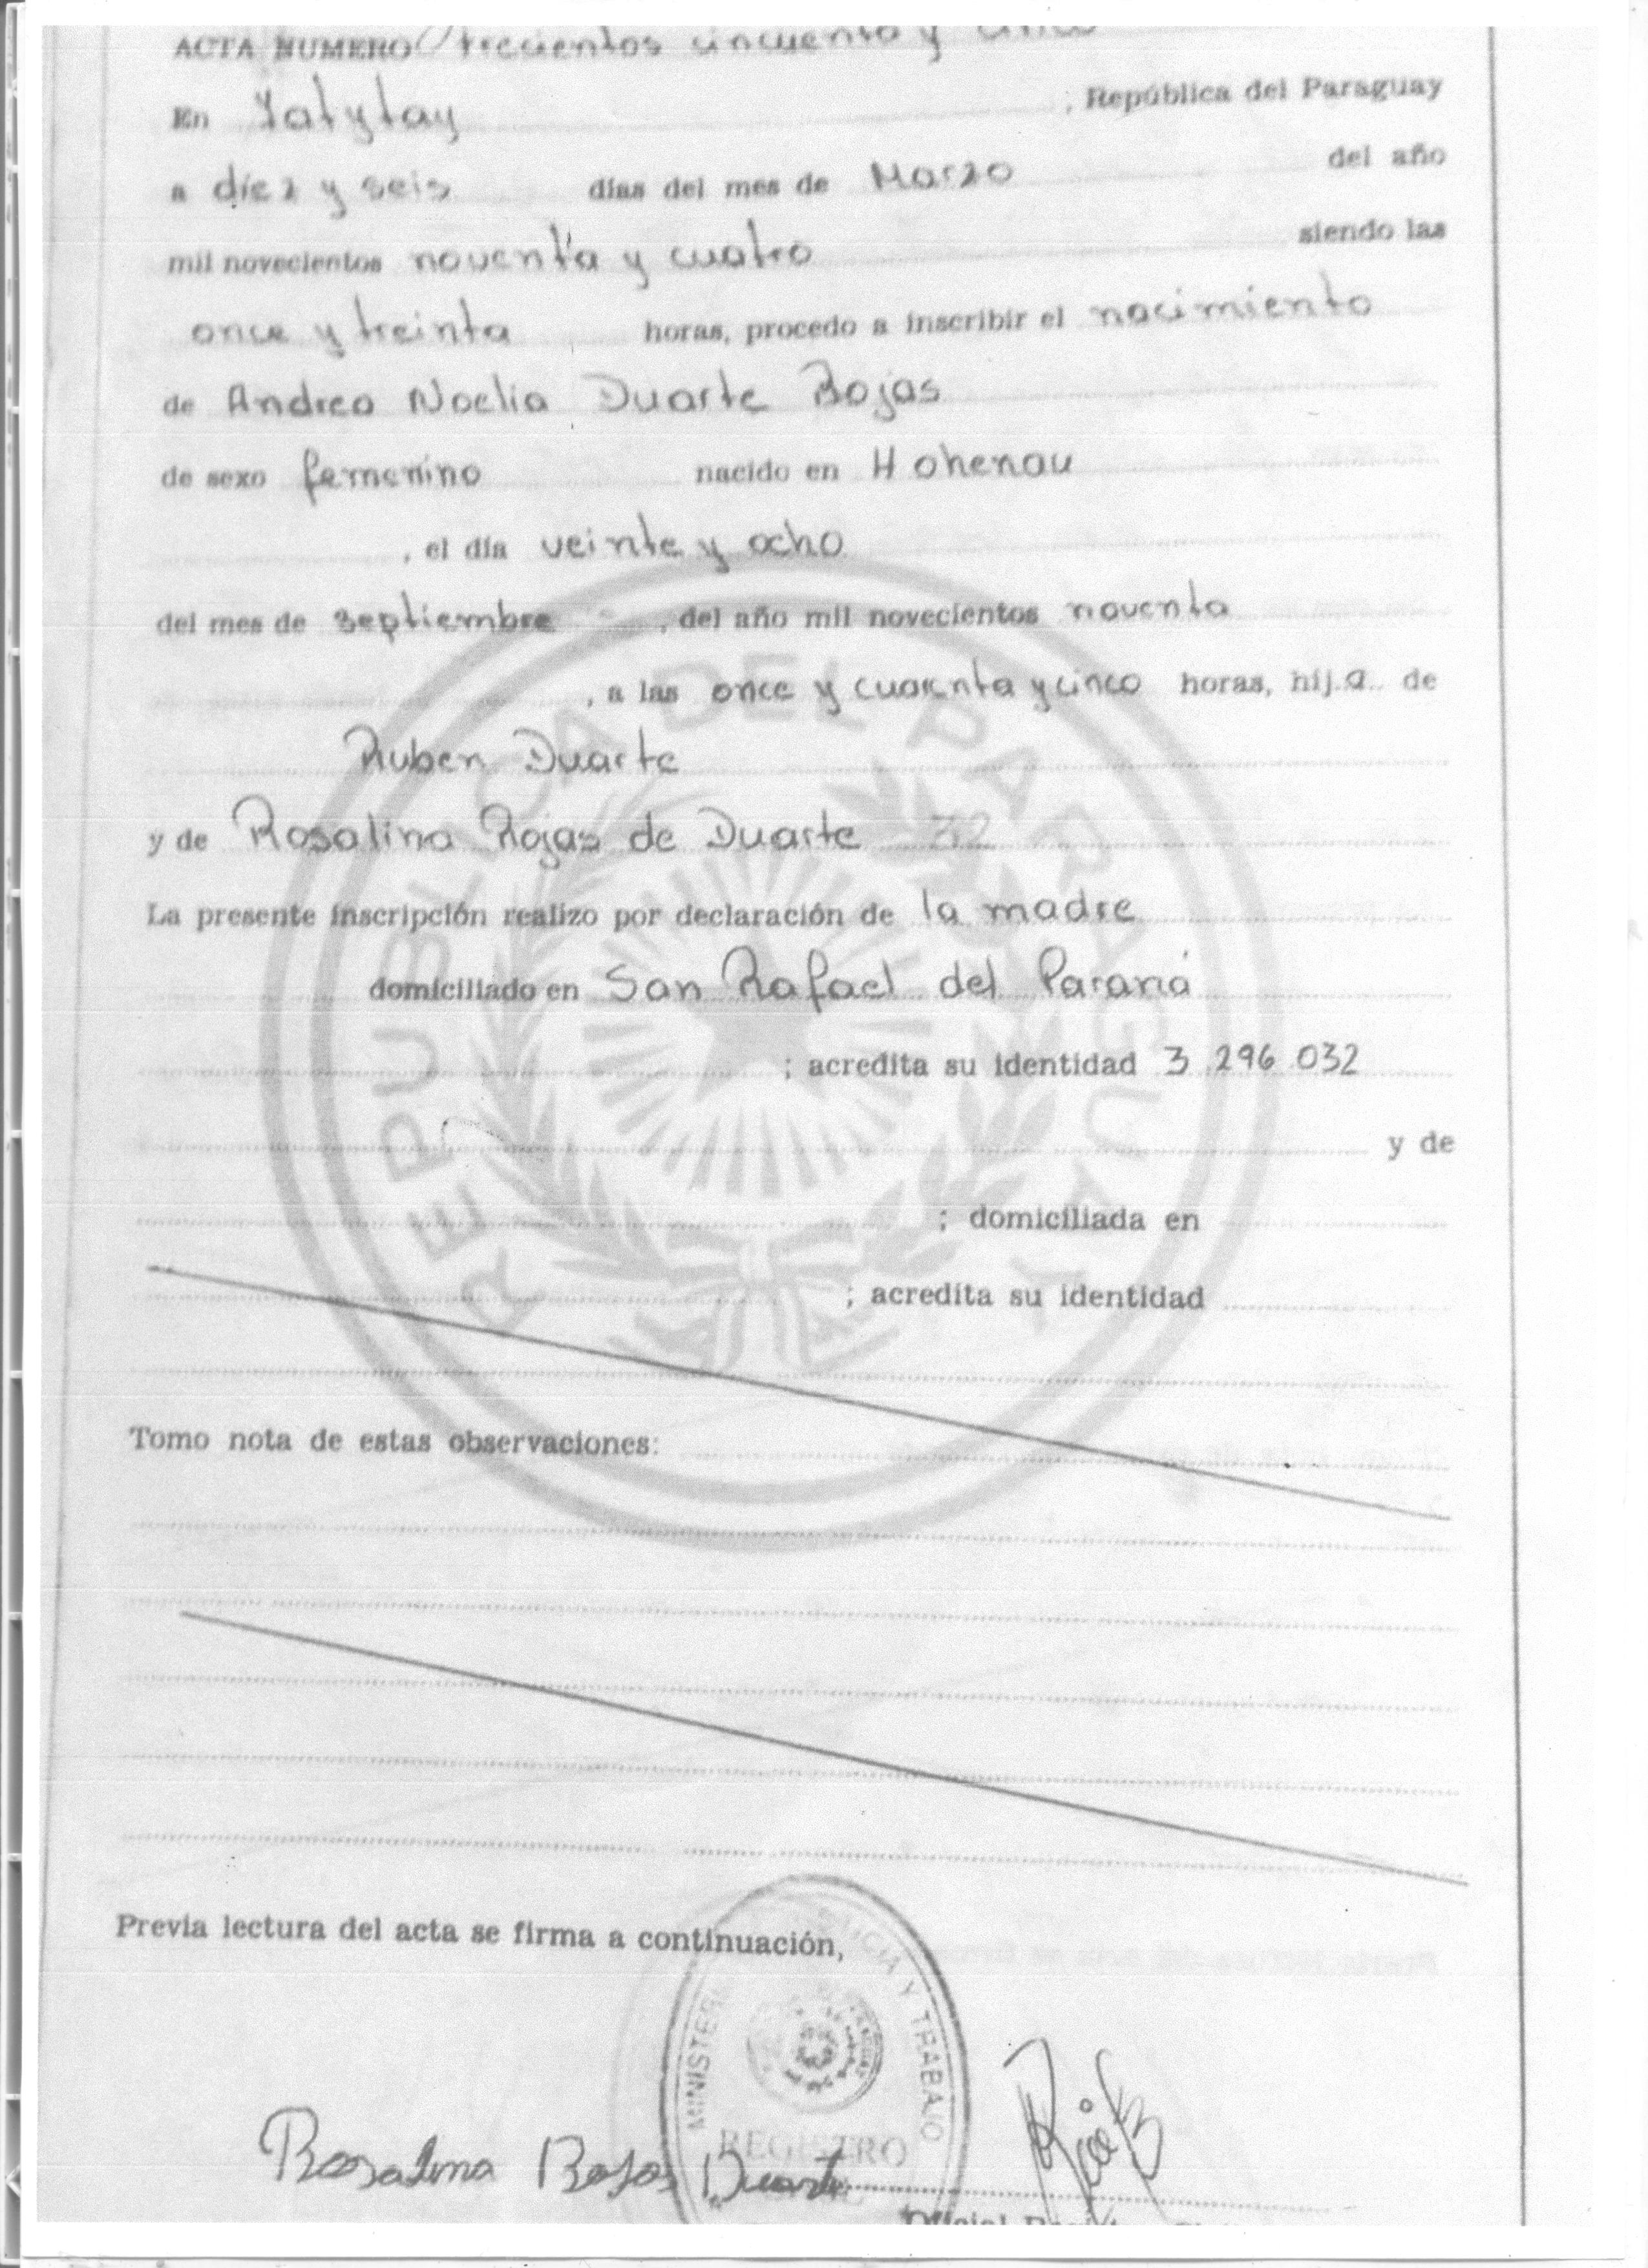 ACTA NUMERO trecientos cincuenta y cinco
En Yatytay , República del Paraguay
a diez y seis días del mes de Marzo del año
mil novecientos noventa y cuatro siendo las
once y treinta horas, procedo a inscribir el nacimiento
de Andrea Noelia Duarte Rojas
de sexo femenino nacido en Hohenau
, el día veinte y ocho
del mes de septiembre , del año mil novecientos noventa
, a las once y cuarenta y cinco horas, hij.a de
Ruben Duarte
y de Rosalina Rojas de Duarte 32
La presente inscripción realizo por declaración de la madre
domiciliado en San Rafael del Paraná
; acredita su identidad 3.296.032
y de
; domiciliada en
; acredita su identidad
Tomo nota de estas observaciones:
Previa lectura del acta se firma a continuación,
REPUBLICA DEL PARAGUAY
MINISTERIO JUSTICIA Y TRABAJO
REGISTRO
Rosalina Rojas Duarte
Oficial